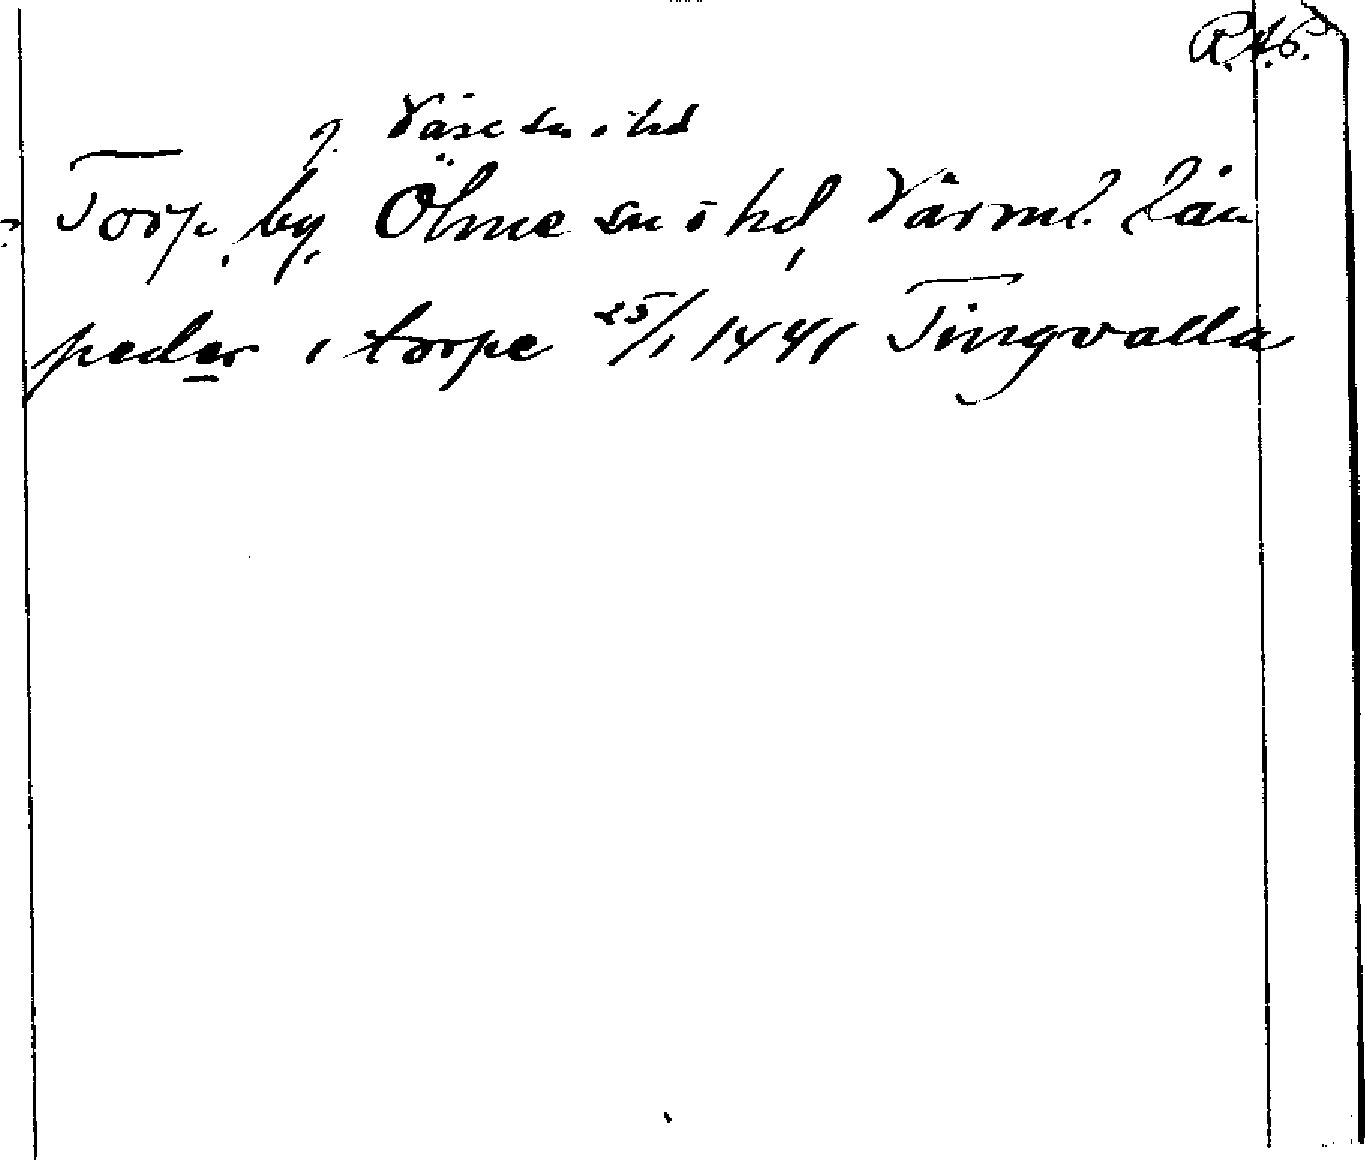 R.A.6.
?. Väse sn o hd
? Torp, by, Ölme sn o hd, Värml. län
peder i torpe 25/1 1441 Tingvalla